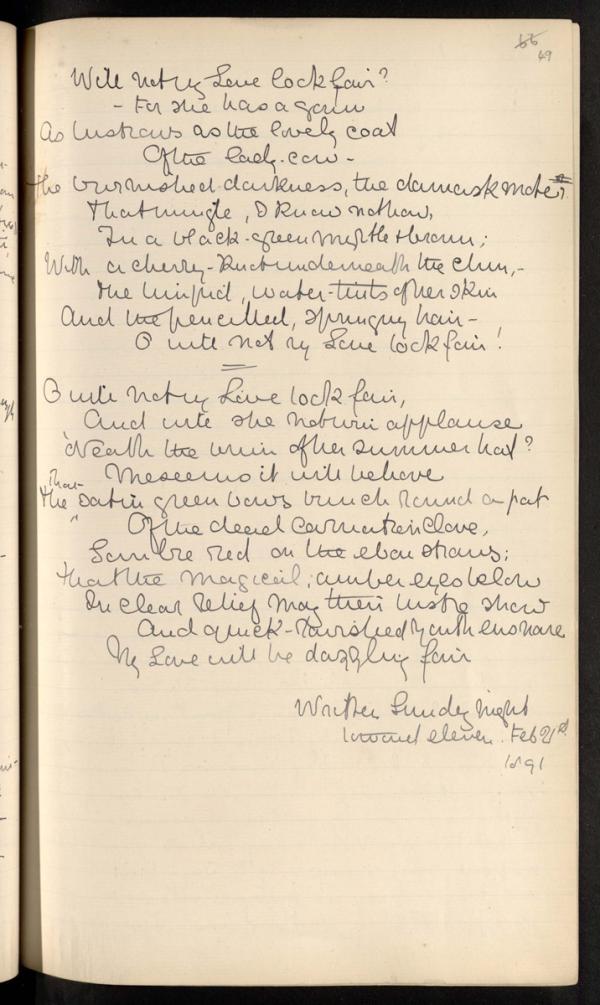 66
49
Will not my Love look fair?
- For she has a gown
As lustrous as the lovely coat
Of the lady-cow -
The burnished darkness, the damask mote
That mingle, I know not how,
In a black-green myrtle & brown;
With a cherry-knot underneath the chin, -
The limpid, water-tints of her skin
And the pencilled, springing hair -
O will not my Love look fair!
O will not my Love look fair,
And will she not win applause
'Neath the brim of her summer hat?
Meseems it will behove
That
The satin green bows bunch round a pat
Of the dead carnation clove,
Sombre red on the ebon straws;
That the magical, amber eyes below
In clear relief may their lustre show
And quick-ravished youth ensnare
My Love will be dazzling fair
Written Sunday night
toward eleven. Feb 21st
1891